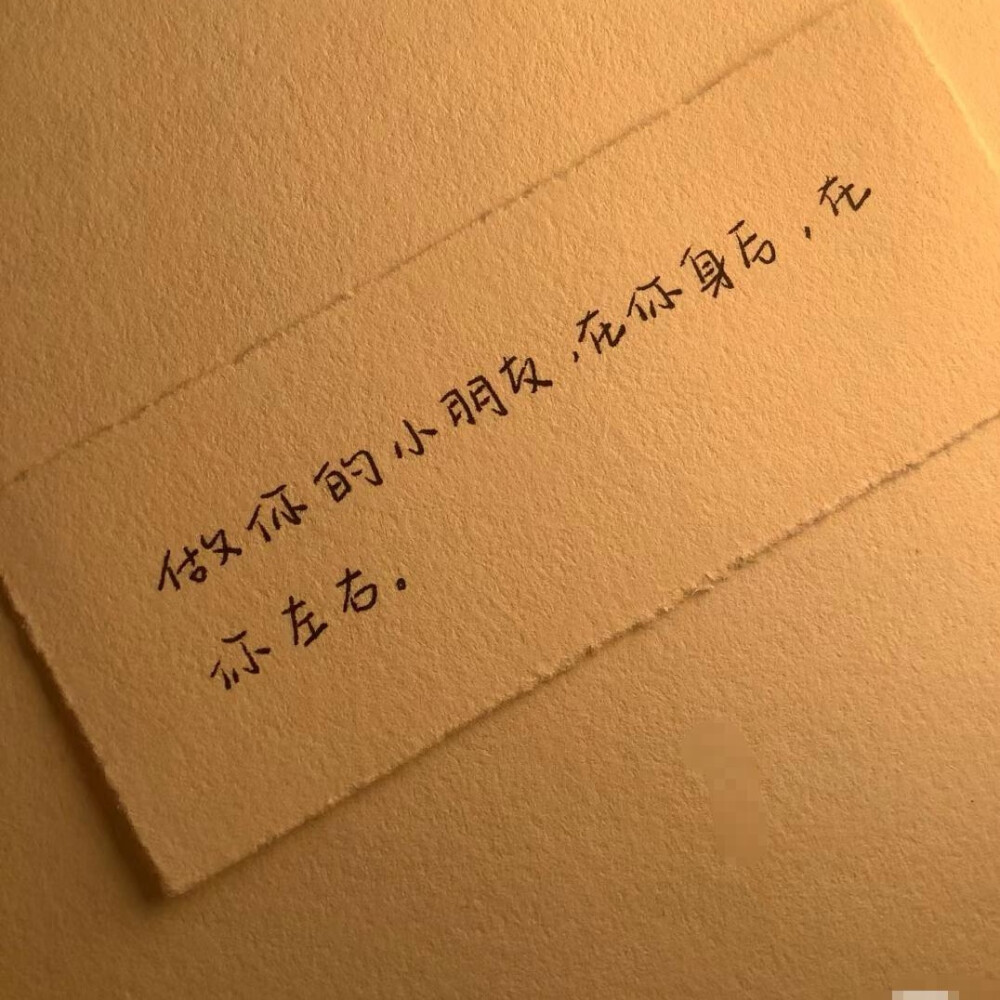 做你的小朋友，在你身后，在
你左右。